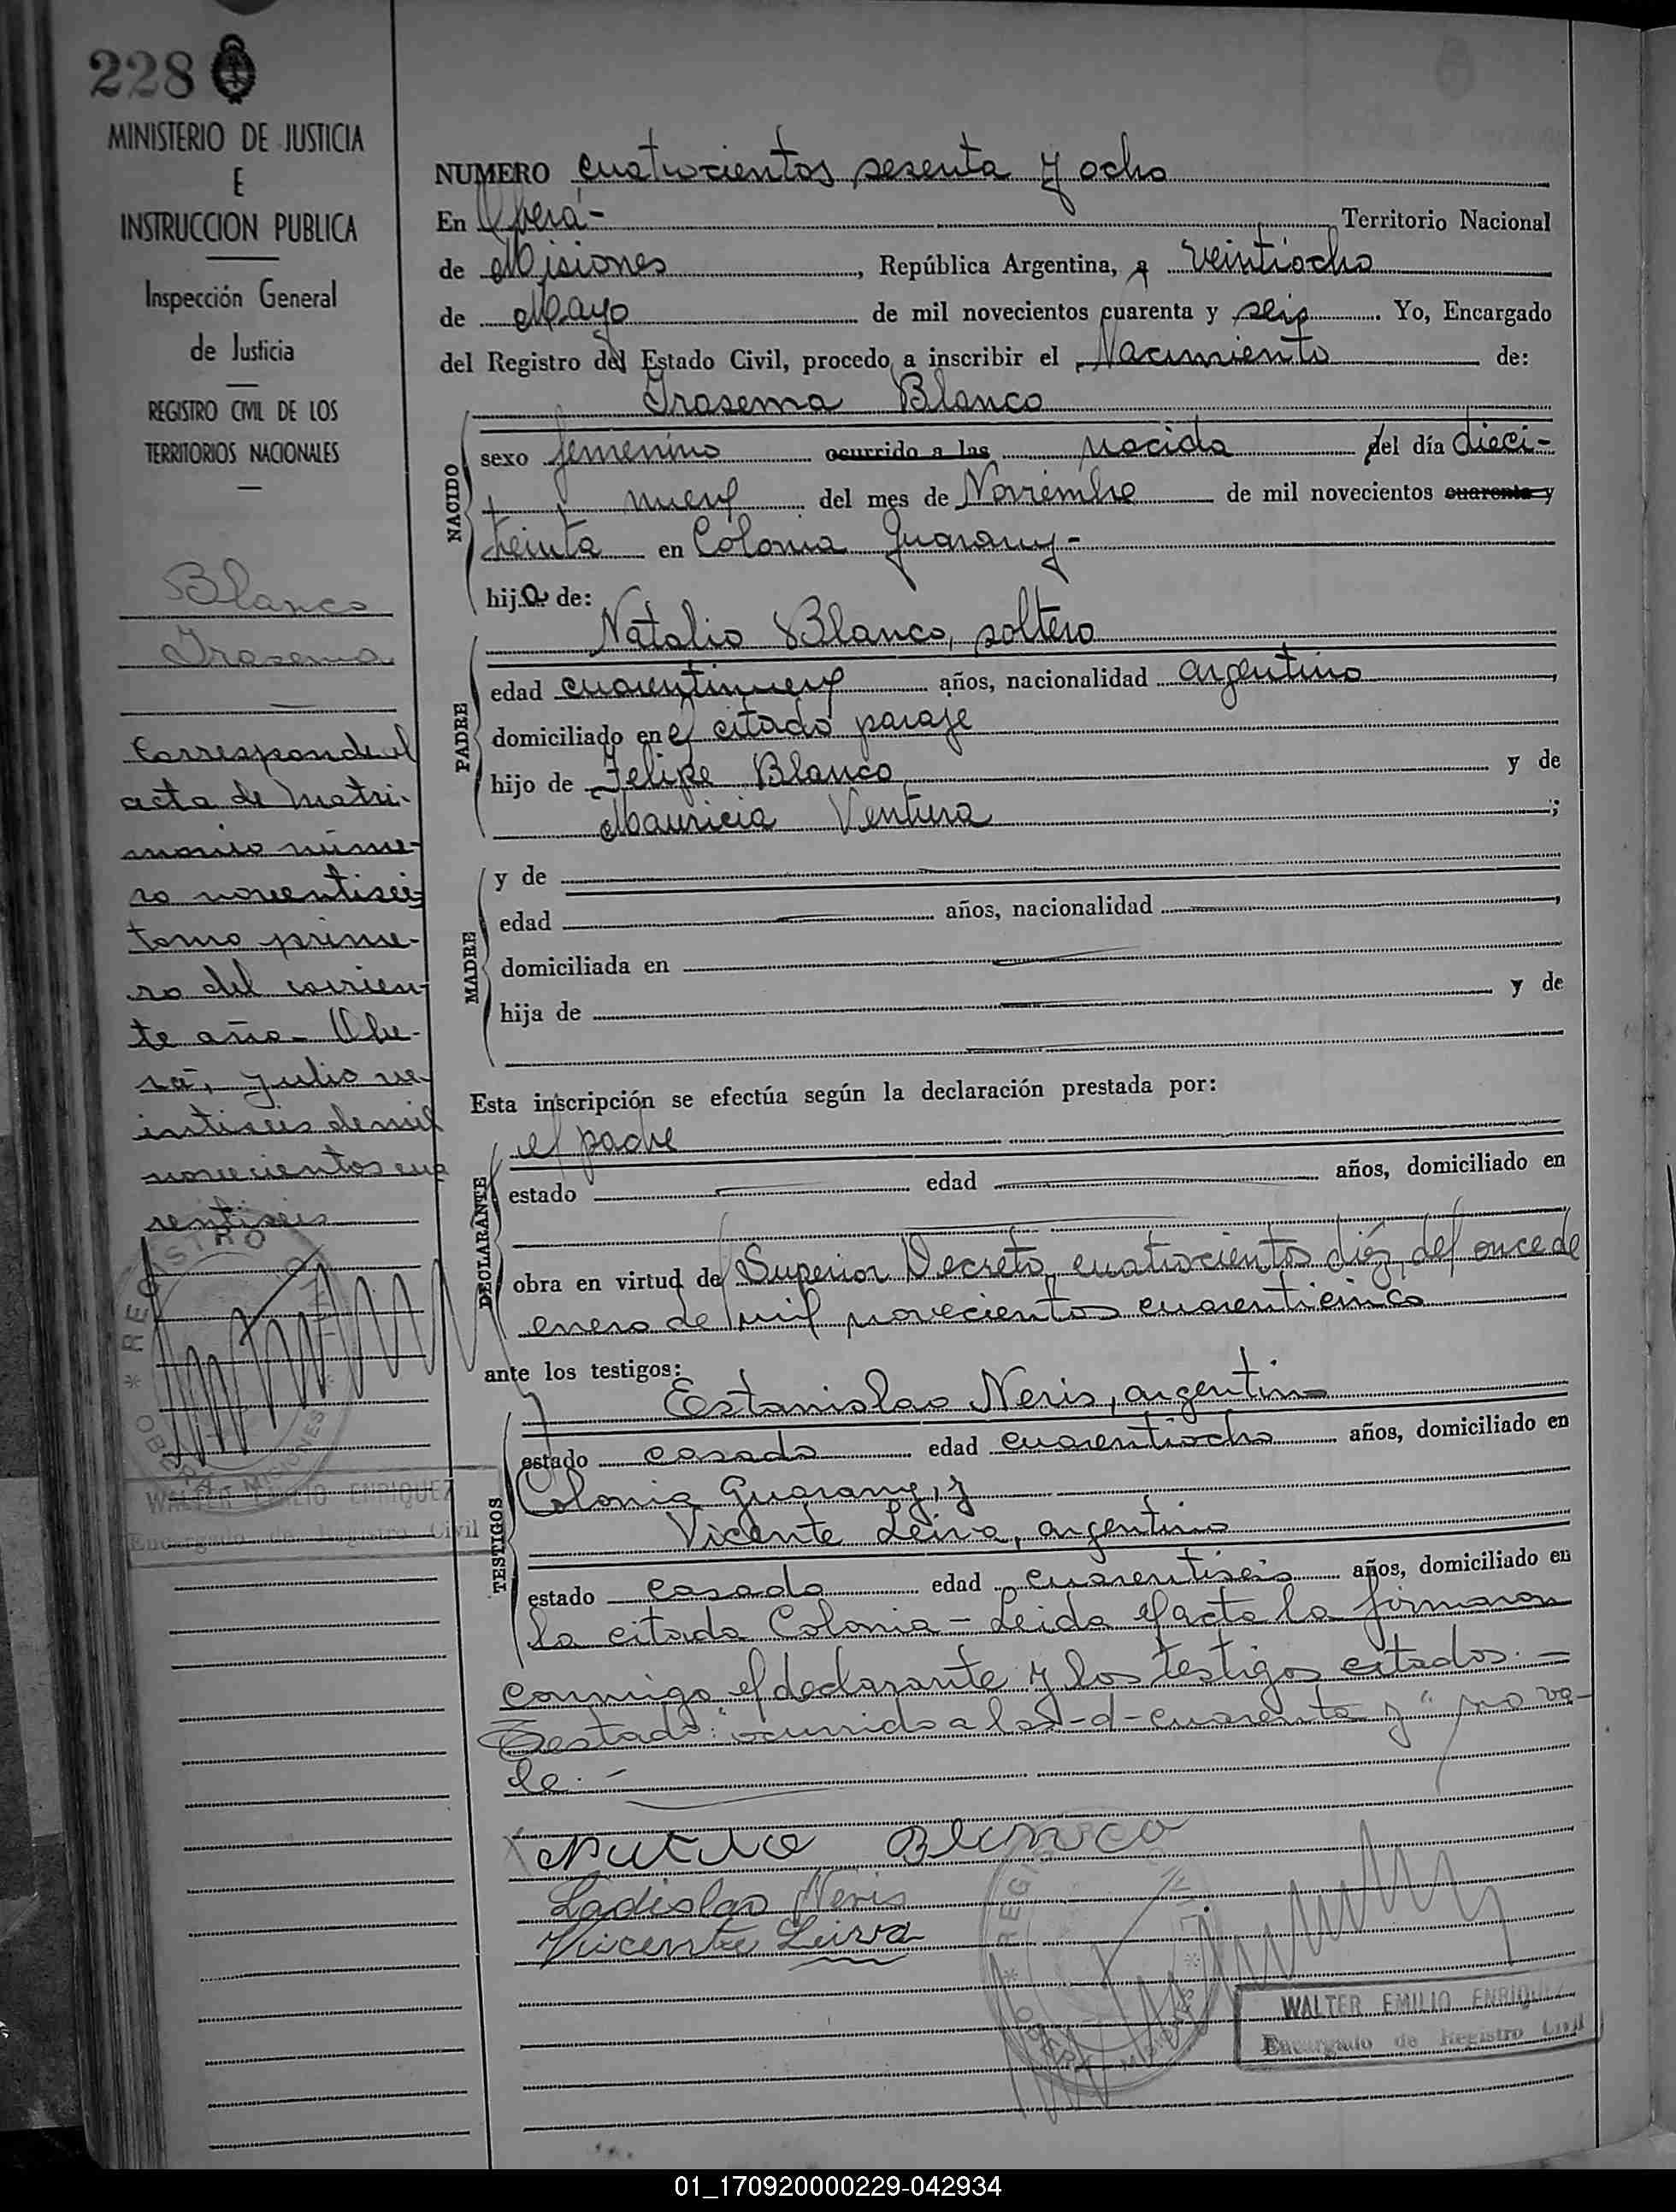 228
MINISTERIO DE JUSTICIA
E
INSTRUCCION PUBLICA
Inspección General
de Justicia
REGISTRO CIVIL DE LOS
TERRITORIOS NACIONALES
Blanco
Irasema
Corresponde al
acta de Matri-
monio núme-
ro noventiseis
tomo prime-
ro del corrien-
te año - Obe-
rá, julio ve-
intiseis de mil
novecientos cua
rentiseis
REGISTRO CIVIL
OBERA MISIONES
WALTER EMILIO ENRIQUEZ
Encargado de Registro Civil
NUMERO cuatrocientos sesenta y ocho
En Oberá - Territorio Nacional
de Misiones, República Argentina, a veintiocho
de Mayo de mil novecientos cuarenta y seis. Yo, Encargado
del Registro del Estado Civil, procedo a inscribir el Nacimiento de:
Irasema Blanco
NACIDO
sexo femenino ocurrido a las nacida del día dieci-
nueve del mes de Noviembre de mil novecientos cuarenta y
treinta en Colonia Guarany -
hija de:
PADRE
Natalio Blanco, soltero
edad cuarentinueve años, nacionalidad argentino
domiciliado en el citado paraje
hijo de Felipe Blanco y de
Mauricia Ventura ;
MADRE
y de
edad años, nacionalidad ,
domiciliada en
hija de y de
Esta inscripción se efectúa según la declaración prestada por:
DECLARANTE
el padre
estado edad años, domiciliado en
obra en virtud del Superior Decreto cuatrocientos diéz, del once de
enero de mil novecientos cuarenticinco
ante los testigos:
TESTIGOS
Estanislao Neris, argentino
estado casado edad cuarentiocho años, domiciliado en
Colonia Guarany, y
Vicente Leiva, argentino
estado casado edad cuarentiseis años, domiciliado en
la citada Colonia - Leida el acta la firmaron
conmigo el declarante y los testigos citados. =
Testado: "ocurrido a las -d- cuarenta y" no va-
le. -
Natalio Blanco
Ladislao Neris
Vicente Leiva
REGISTRO CIVIL
OBERA MISIONES
WALTER EMILIO ENRIQUEZ
Encargado de Registro Civil
01_170920000229-042934